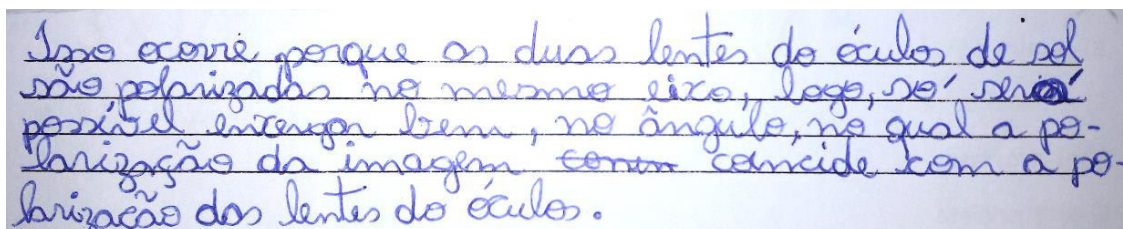 Isso ocorre porque as duas lentes do óculos de sol
são polarizadas no mesmo eixo, logo, só será
possível enxergar bem, no ângulo, no qual a po-
larização da imagem coincide com a po-
larização das lentes do óculos.